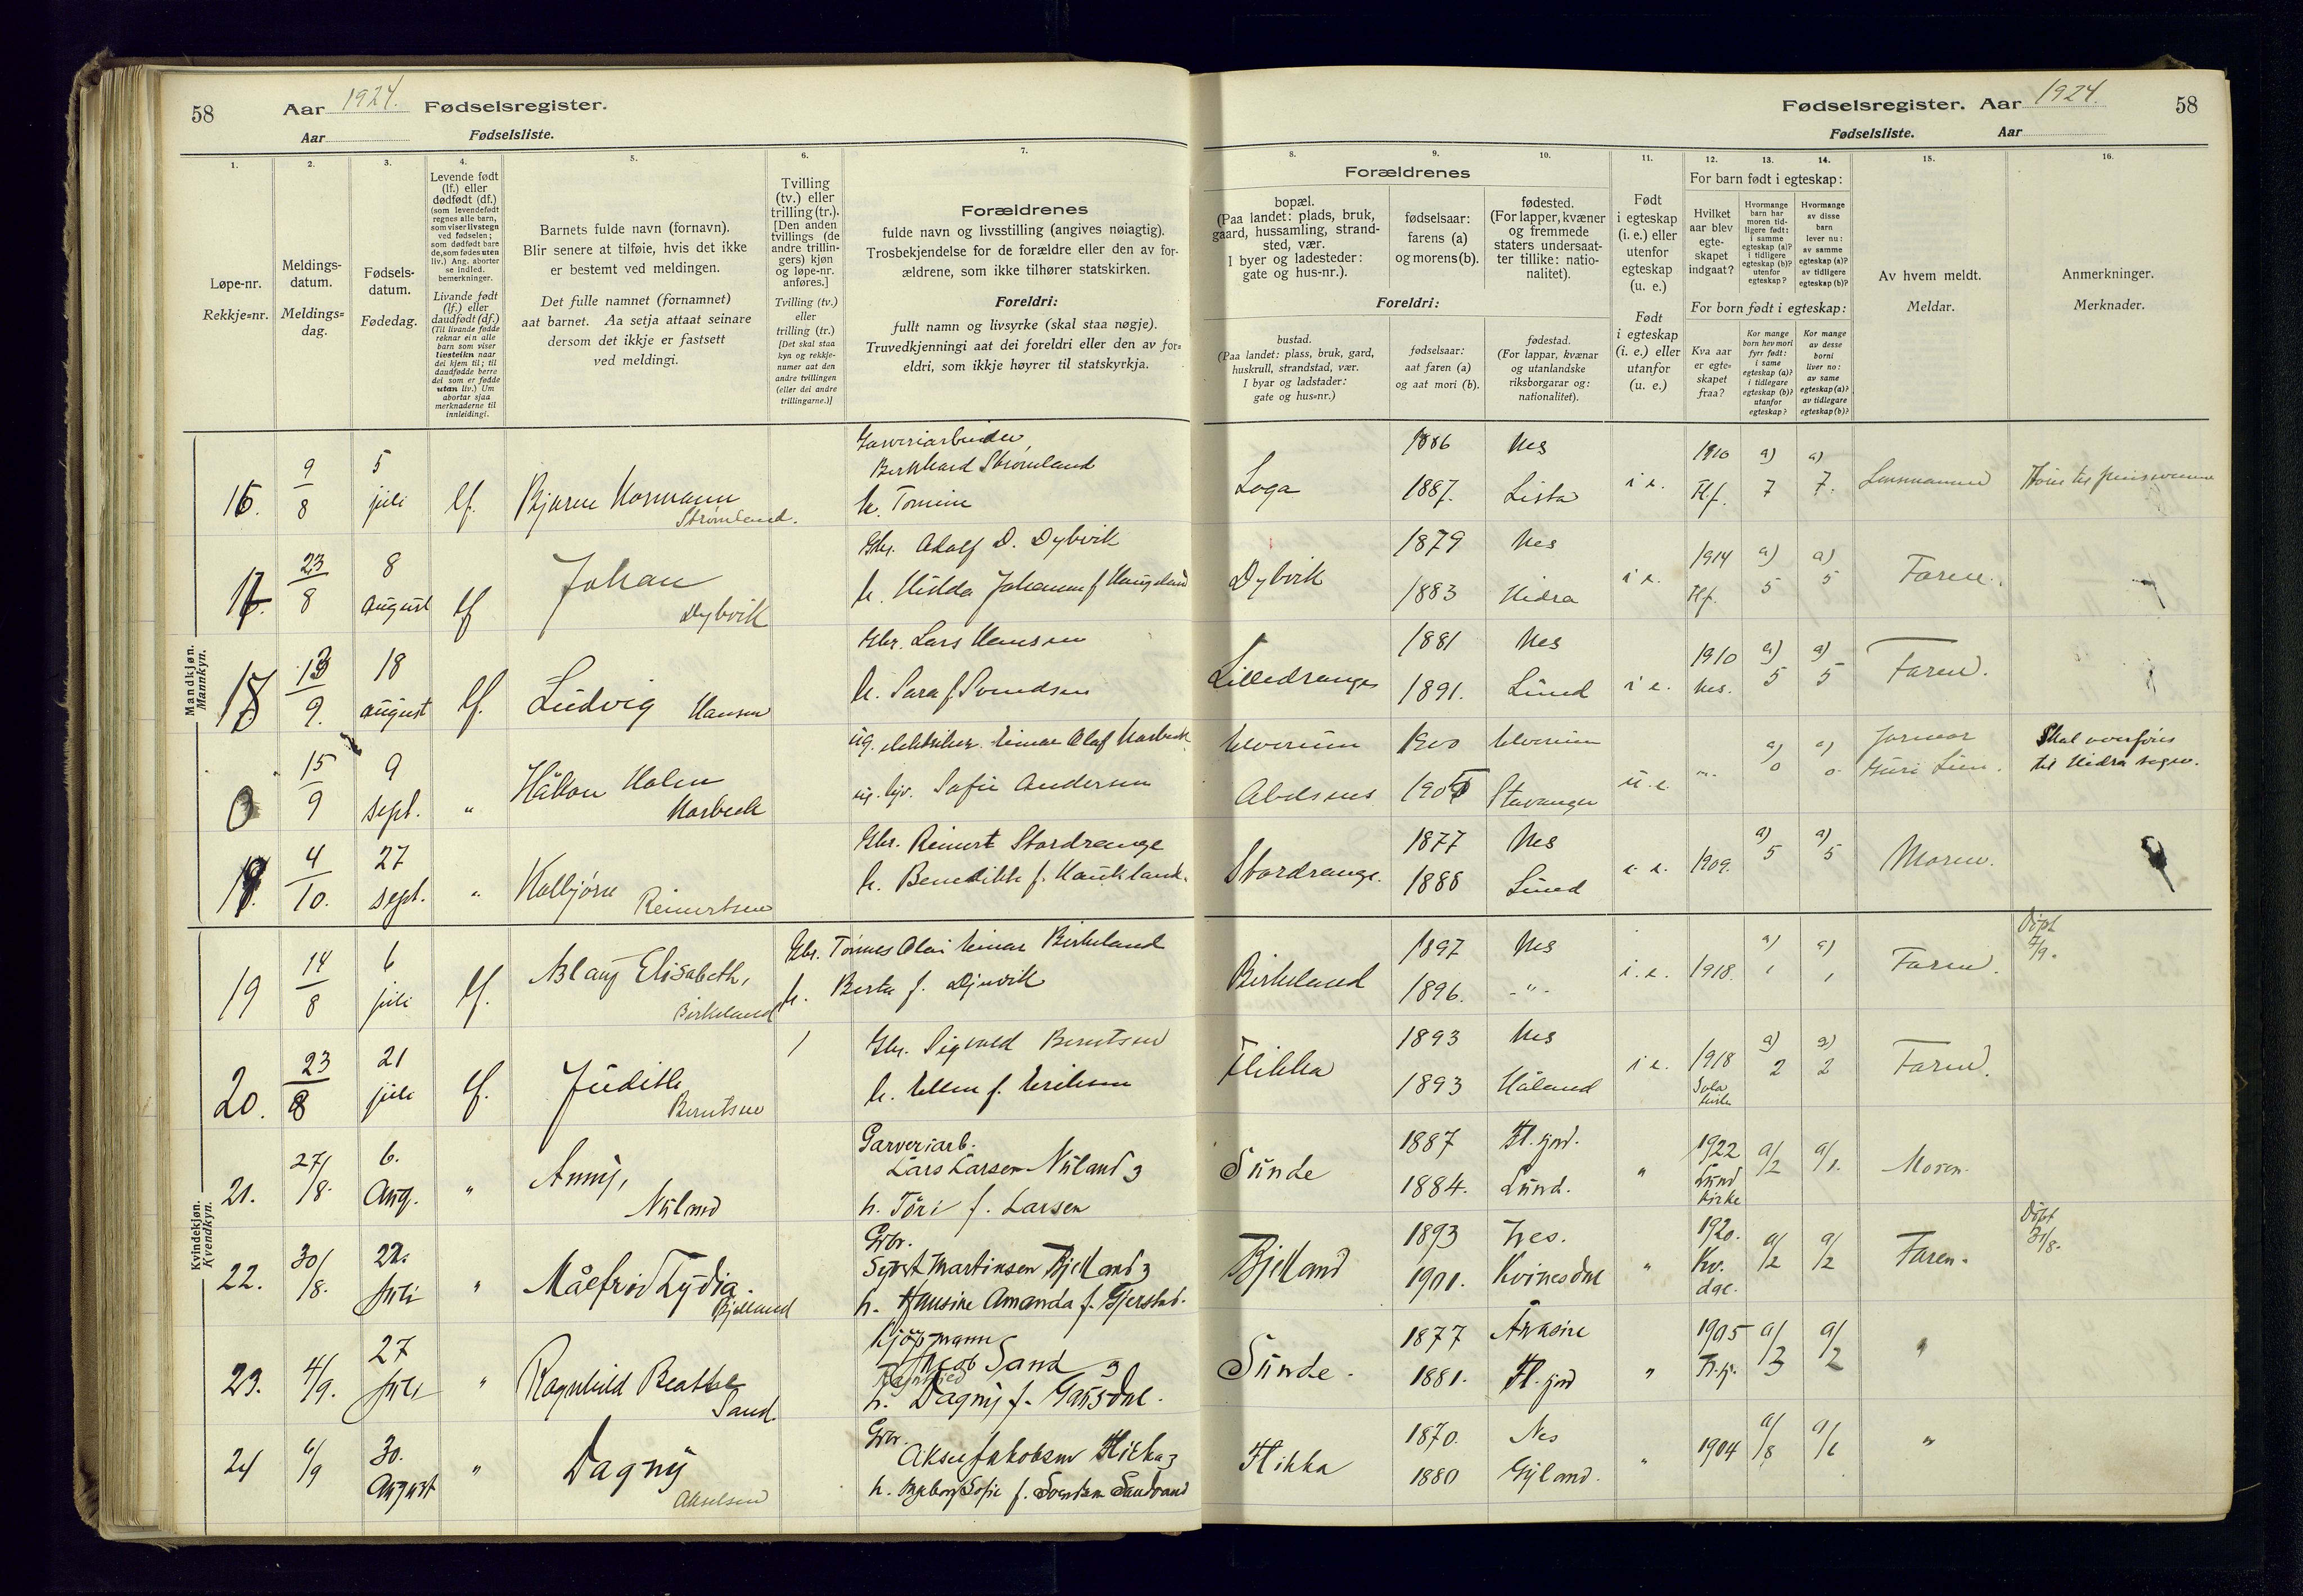 58
Aar 1924. Fødselsregister.
Aar Fødselsliste.
1.
2.
3.
4.
5.
6.
7.
Løpe-nr.
Rekkje=nr.
Meldings-
datum.
Meldings=
dag.
Fødsels-
datum.
Fødedag.
Levende født
(lf.) eller
dødfødt (df.)
(som levendefødt
regnes alle barn,
som viser livstegn
ved fødselen;
som dødfødt bare
de, som fødes uten
liv.) Ang. aborter
se indled.
bemerkninger.
Livande født
(lf.) eller
daudfødt (df.)
(Til livande fødde
reknar ein alle
barn som viser
livsteikn naar
dei kjem til; til
daudfødde berre
dei som er fødde
utan liv.) Um
abortar sjaa
merknaderne til
innleidingi.
Barnets fulde navn (fornavn).
Blir senere at tilføie, hvis det ikke
er bestemt ved meldingen.
Det fulle namnet (fornamnet)
aat barnet. Aa setja attaat seinare
dersom det ikkje er fastsett
ved meldingi.
Tvilling
(tv.) eller
trilling (tr.).
[Den anden
tvillings (de
andre trillin-
gers) kjøn
og løpe-nr.
anføres.]
Tvilling (tv.)
eller
trilling (tr.)
[Det skal staa
kyn og rekkje-
numer aat den
andre tvillingen
(eller dei andre
trillingarne.)]
Forældrenes
fulde navn og livsstilling (angives nøiagtig).
Trosbekjendelse for de forældre eller den av for-
ældrene, som ikke tilhører statskirken.
Foreldri:
fullt namn og livsyrke (skal staa nøgje).
Truvedkjenningi aat dei foreldri eller den av for=
eldri, som ikkje høyrer til statskyrkja.
Mandkjøn.
Mannkyn.
16. 9/8 5 juli lf. Bjarne Normann Strømland.
Garveriarbeider
Bernhard Strømland
h. Tomine
17. 23/8 8 august lf Johan Dybvik
Gbr. Adolf D. Dybvik
h. Hilda Johanne f. Haugeland
18 13/9. 18 august lf. Ludvig Hansen
Gbr. Lars Hansen
h. Sara f. Svendsen
0 15/9 9 sept. " Håkon Holen Norbeck
ug. elektriker Einar Olaf Norbeck
ug. Sofie Andersen
4/10. 27 sept. " Kolbjørn Reinertsen
Gbr. Reinert Stordrange
h. Benedikte f. Haukland.
Kvindekjøn.
Kvendkyn.
19 14/8 6 juli lf. Aslaug Elisabeth, Birkeland
Gbr. Tønnes Olai Einar Birkeland
h. Berta f. Djuvik
20. 23/8 21 juli lf. Judith Berntsen
Gbr. Sigvald Berntsen
h. Ellen f. Eriksen
21. 27/8. 6. Aug. " Anny, Nuland
Garveriarb.
Lars Larsen Nuland
h. Tori f. Larsen
22. 30/8. 22. Juli " Målfrid Lydia. Bjelland
Gbr.
Syvert Martinsen Bjelland
h. Hansine Amanda f. Gjerstad.
23. 4/9. 27 Juli " Ragnhild Beathe Sand
Kjøpmann
Jacob Sand
h. Dagny f. Gausdal.
24 6/9 30. August " Dagny Akselsen
Gbr.
Aksel Jakobsen Flikka
h. Ingeborg Sofie f. Svendsen Sandvand
Fødselsregister. Aar 1924. 58
Fødselsliste. Aar
8.
9.
10.
11.
12.
13.
14.
15.
16.
Forældrenes
bopæl.
(Paa landet: plads, bruk,
gaard, hussamling, strand-
sted, vær.
I byer og ladesteder:
gate og hus-nr.).
fødselsaar:
farens (a)
og morens (b).
fødested.
(For lapper, kvæner
og fremmede
staters undersaat-
ter tillike: natio-
nalitet).
Foreldri:
bustad.
(Paa landet: plass, bruk, gard,
huskrull, strandstad, vær.
I byar og ladstader:
gate og hus=nr.)
fødselsaar:
aat faren (a)
og aat mori (b).
fødestad.
(For lappar, kvænar
og utanlandske
riksborgarar og:
nationalitet).
Født
i egteskap
(i. e.) eller
utenfor
egteskap
(u. e.)
Født
i egteskap
(i. e.) eller
utanfor
(u. e.)
For barn født i egteskap:
Hvilket
aar blev
egte-
skapet
indgaat?
Hvormange
barn har
moren tid-
ligere født:
i samme
egteskap (a)?
i tidligere
egteskap (b)?
utenfor
egteskap?
Hvormange
av disse
barn
lever nu:
av samme
egteskap (a)?
av tidligere
egteskap (b)?
For born født i egteskap:
Kva aar
er egte=
skapet
fraa?
Kor mange
born hev mori
fyrr født:
i same
egteskap (a)?
i tidlegare
egteskap (b)?
utanfor
egteskap?
Kor mange
av desse
borni
liver no:
av same
egteskap (a)?
av tidlegare
egteskap (b)?
Av hvem meldt.
Meldar.
Anmerkninger.
Merknader.
Loga 1886 Nes i e. 1910 a) a) Lensmannen
1887. Lista Fl.f. 7 7.
Dybvik 1879 Nes i e. 1914 a) a) Faren.
1883 Hidra Fl.f. 5 5
Lilledrange 1881 Nes i e. 1910 a) a) Faren.
1891. Lund Nes. 5 5
Elverum 1900 Elverum u. e. a) a) Jormor Skal overføres
Abelsnes Stavanger 0 0 Guri Lien. til Hidra sogn.
Stordrange. 1877 Nes i. e. 1909. a) a) Moren.
1888 Lund 5 5
Birkeland 1897 Nes i. e. 1918. a) a) Faren. Døpt
1896. -"- 1 1 7/9.
Flikka 1893 Nes i e. 1918 a) a) Faren.
1893 Håland Sola kirke 2 2
Sunde 1887 Fl.fjord. " 1922 a/2 a/1. Moren.
1884. Lund. Lund kirke
Bjelland 1893 Nes. " 1920. a/2 a/2 Faren. Døpt
1901. Kvinesdal Kv. dal. 31/8.
Sunde. 1877 Ånasire " 1905 a/3 a/2 "
1881. Fl.fjord
Flikka 1870. Nes " 1904 a/8 a/6 "
1880 Gyland.